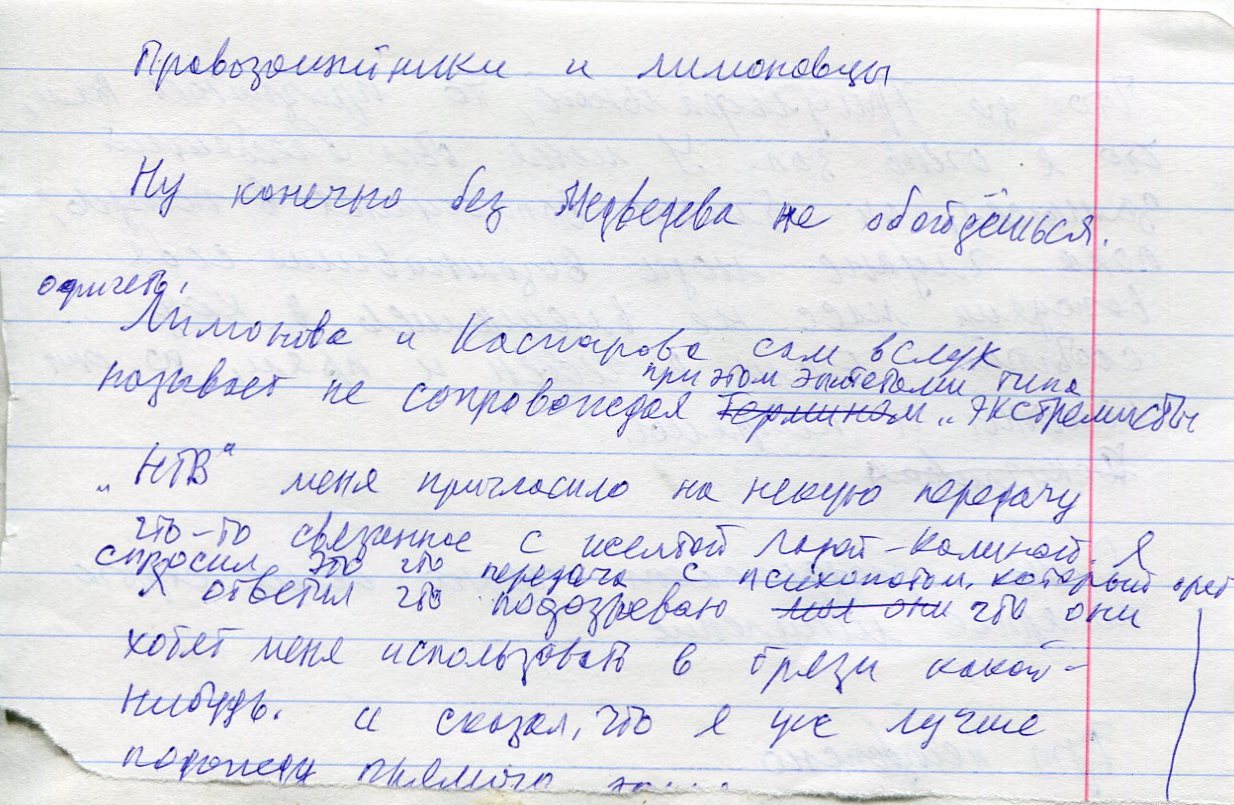 Правозащитники и лимоновцы
Ну конечно без Медведева не обойдёшься.
Лимонова и Каспарова сам вслух
называет не сопровождая при этом эпитетами типа
термином „экстремисты
„НТВ" меня пригласило на некую передачу
что-то связанное с желтой Лерой-Калиной. Я
спросил, это что передача с психопатом, который орет
Я ответил что подозреваю они что они
хотят меня использовать в грязи какой-
нибудь. и сказал, что я уж лучше
подожду прямого